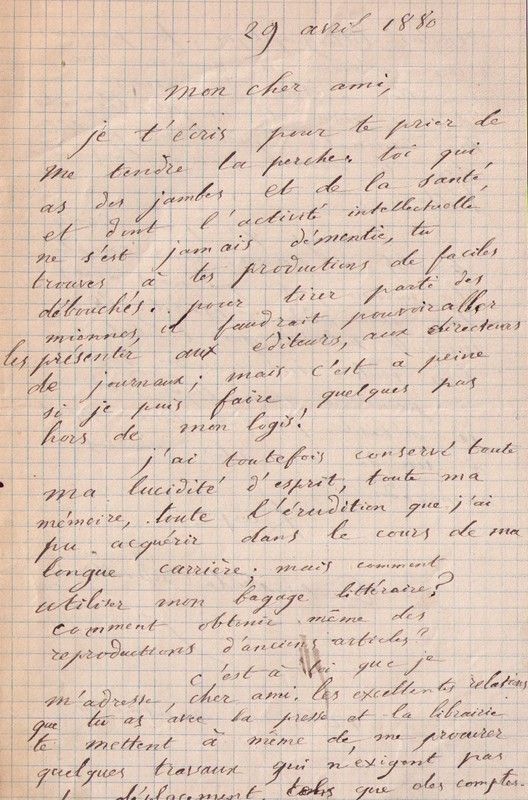 29 avril 1880
mon cher ami,
je t'écris pour te prier de
me tendre la perche. toi qui
as des jambes et de la santé,
et dont l'activité intellectuelle
ne s'est jamais démentie, tu
trouves à tes productions de faciles
débouchés.. pour tirer parti des
miennes, il faudrait pouvoir aller
les présenter aux éditeurs, aux directeurs
de journaux; mais c'est à peine
si je puis faire quelques pas
hors de mon logis!
j'ai toutefois conservé toute
ma lucidité d'esprit, toute ma
mémoire, toute l'érudition que j'ai
pu acquérir dans le cours de ma
longue carrière; mais comment
utiliser mon bagage littéraire?
comment obtenir même des
reproductions d'anciens articles?
c'est à toi que je
m'adresse, cher ami. les excellentes relations
que tu as avec la presse et la librairie
te mettent à même de me procurer
quelques travaux qui n'exigent pas
déplacement, tels que des comptes-